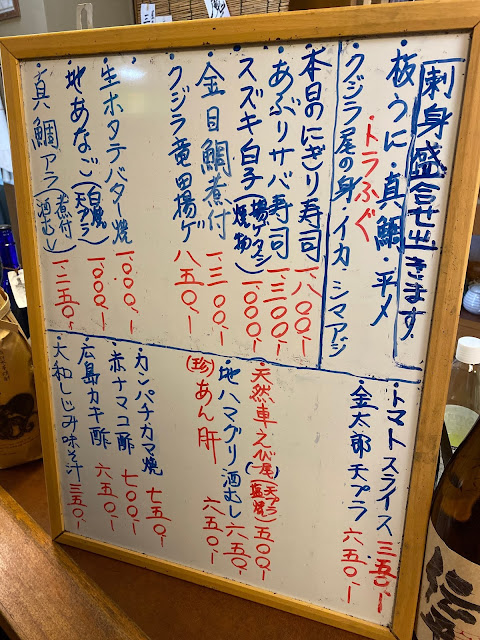 刺身盛合せ出きます
・板うに・真鯛・平メ
・トラふぐ
・クジラ尾の身・イカ・シマアジ
・本日のにぎり寿司 一、八〇〇、-
・あぶりサバ寿司 一、三〇〇、-
・スズキ白子(揚ゲダシ 焼物) 一、〇〇〇、-
・金目鯛煮付 一、三〇〇、-
・クジラ竜田揚ゲ 八五〇、-
・生ホタテバター焼 一、〇〇〇、-
・地あなご(白焼 天プラ) 一、〇〇〇、-
・真鯛アラ(煮付 酒むし) 一、二五〇、-
・トマトスライス 三五〇、-
・金太郎天プラ 六五〇、-
・天然車えび(一尾)(天プラ 塩焼) 五〇〇、-
・地ハマグリ酒むし 六五〇、-
(珍)あん肝 六五〇、-
・カンパチカマ焼 七五〇、-
・赤ナマコ酢 七〇〇、-
・広島カキ酢 六五〇、-
・大和しじみ味そ汁 三五〇、-